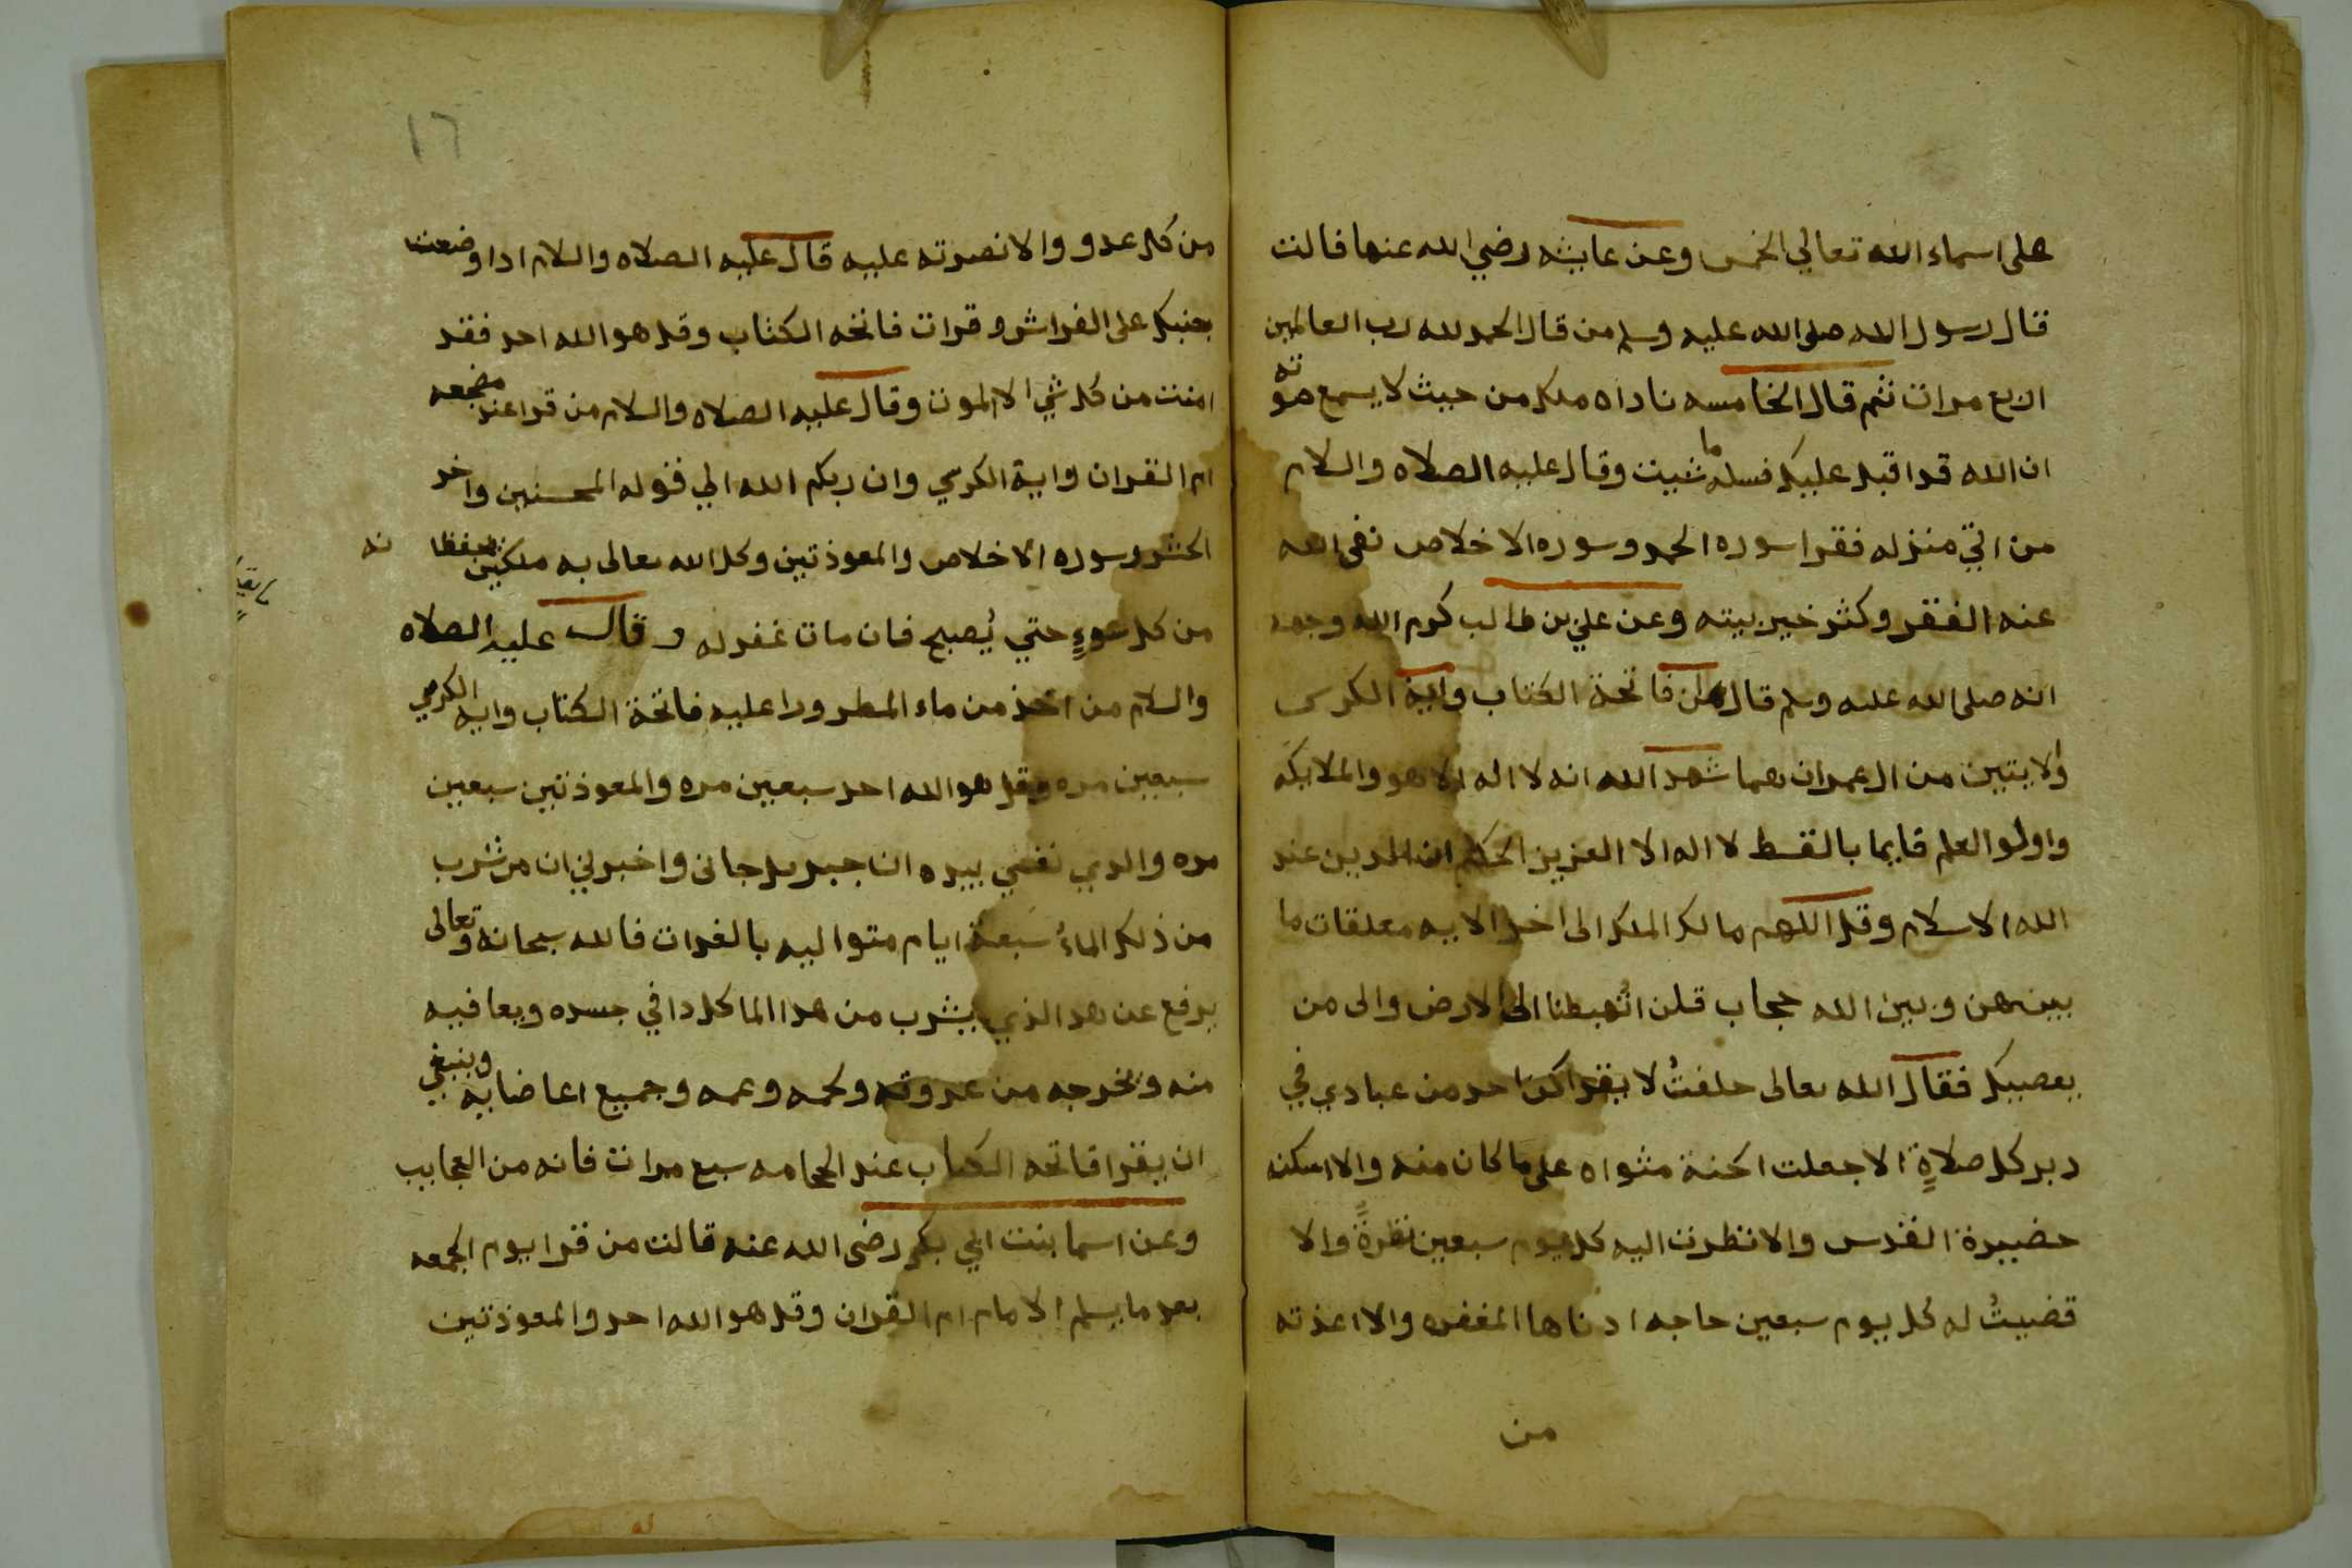 على اسماء الله تعالي الخمس وعن عايشه رضي الله عنها قالت
قال رسول الله صلى الله عليه وسلم من قال الحمد لله رب العالمين
اربع مرات ثم قال الخامسه ناداه ملك من حيث لا يسمع صوته
ان الله قد اقبل عليك فسله ما شيت وقال عليه الصلاه والسلام
من اتي منزله فقرا سوره الحمد وسوره الاخلاص نفى الله
عنه الفقر وكثر خير بيته وعن علي بن طالب كرم الله وجهه
انه صلى الله عليه وسلم قال ان فاتحة الكتاب واية الكرسى
والايتين من ال عمران هما شهد الله انه لا اله الا هو والملايكه
واولوا العلم قايما بالقسط لا اله الا العزيز الحكيم ان الدين عند
الله الاسلام وقل اللهم مالك الملك الى اخر الايه معلقات ما
بينهن وبين الله حجاب قلن اتُهبطنا الى الارض والى من
يعصيك فقال الله تعالى حلفتُ لا يقراكن احد من عبادي في
دبر كل صلاةٍ الا جعلت الجنة مثواه على ما كان منه والا اسكنه
حضيرة القدس والا نظرت اليه كل يوم سبعين نظرةً والا
قضيتُ له كل يوم سبعين حاجه ادناها المغفره والا اعذته
من
١٦
من كل عدو والا نصرته عليه قال عليه الصلاه والسلام اذا وضعت
جنبك على الفراش وقرات فاتحه الكتاب وقل هو الله احد فقد
امنت من كل شي الا الموت وقال عليه الصلاه والسلام من قرا عند مضجعه
ام القران واية الكرسي وان ربكم الله الي قوله المحسنين واخر
الحشر وسوره الاخلاص والمعوذتين وكل الله تعالى به ملكين يحفظانه
من كل سوءٍ حتي يُصبح فان مات غفر له وقال عليه الصلاه
والسلام من اخذ من ماء المطر وقرا عليه فاتحة الكتاب وايه الكرسي
سبعين مره وقل هو الله احد سبعين مره والمعوذتين سبعين
مره والدي نفسي بيده ان جبريل جانى واخبرني ان من شرب
من ذلك الماءُ سَبعة ايام متواليه بالغدات فالله سبحانه وتعالى
يرفع عن هد الذي يشرب من هدا الما كل دا في جسده ويعافيه
منه ويخرجه من عروقه ولحمه وعمه وجميع اعاضايه وينبغي
ان يقرا فاتحه الكتاب عند الحجامه سبع مرات فانه من العجايب
وعن اسما بنت ابي بكر رضى الله عنه قالت من قرا يوم الجمعه
بعد ما يسلم الامام ام القران وقل هو الله احد والمعوذتين